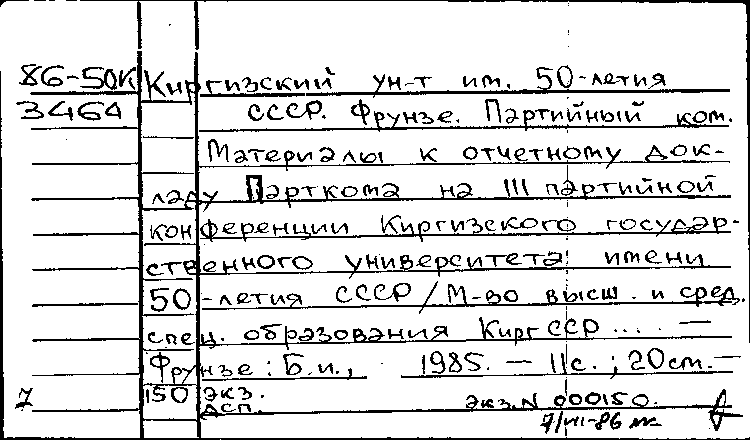 86-50К Киргизский ун-т им. 50-летия
3464 СССР. Фрунзе. Партийный ком.
Материалы к отчетному док-
ладу Парткома на III партийной
конференции Киргизского государ-
ственного университета имени
50-летия СССР / М-во высш. и сред.
спец. образования Кирг ССР .... —
Фрунзе : Б.и., 1985. — 11 с. ; 20 см. —
7 150 экз. экз. N 000150.
ДСП.
7/VII-86